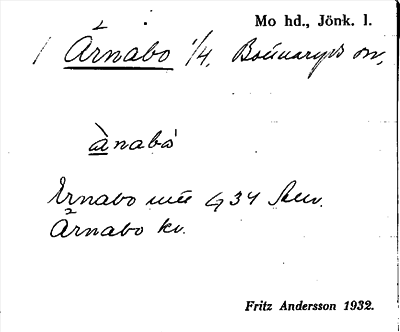 Mo hd., Jönk. l.
Årnabo 1/4. Bonnaryds sn,
ànabo
Ernabo 434
Årnabo kv.
Fritz Andersson 1932.